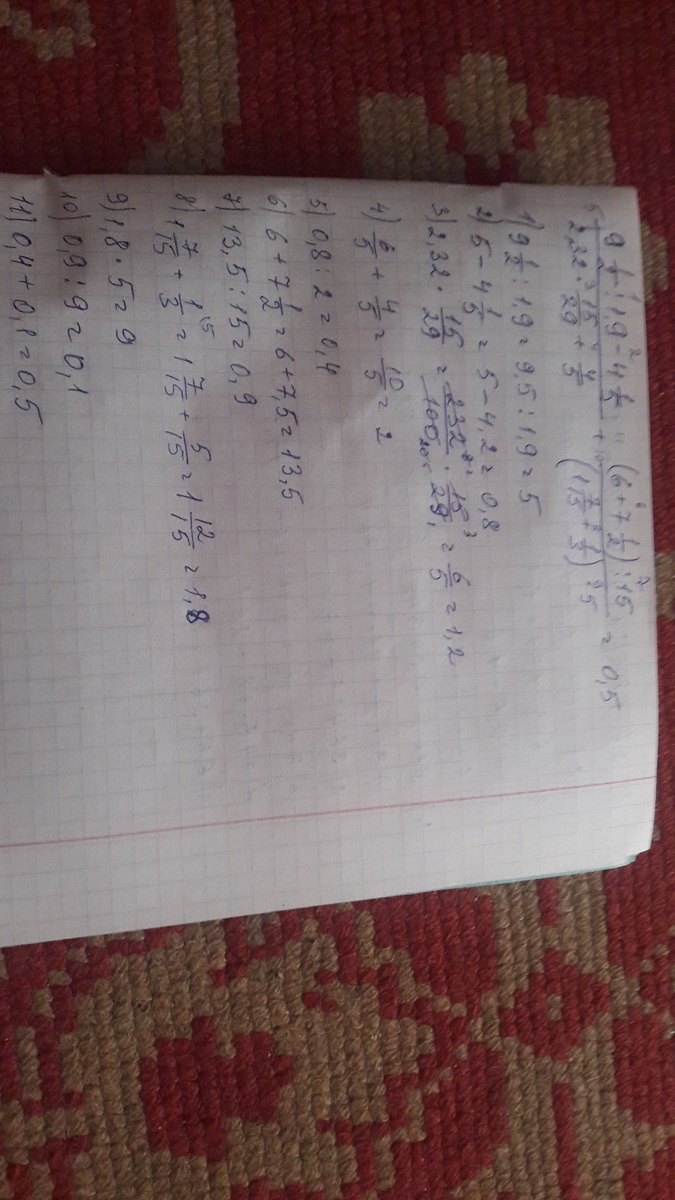 9 1/2 : 1,9 - 4 1/5 (6 + 7 1/2) : 15
2,32 · 15/29 + 4/5 + (1 7/15 + 1/3) · 5 = 0,5
1) 9 1/2 : 1,9 = 9,5 : 1,9 = 5
2) 5 - 4 1/5 = 5 - 4,2 = 0,8
3) 2,32 · 15/29 = 232/100 · 15/29 = 6/5 = 1,2
4) 6/5 + 4/5 = 10/5 = 2
5) 0,8 : 2 = 0,4
6) 6 + 7 1/2 = 6 + 7,5 = 13,5
7) 13,5 : 15 = 0,9
8) 1 7/15 + 1/3 = 1 7/15 + 5/15 = 1 12/15 = 1,8
9) 1,8 · 5 = 9
10) 0,9 : 9 = 0,1
11) 0,4 + 0,1 = 0,5